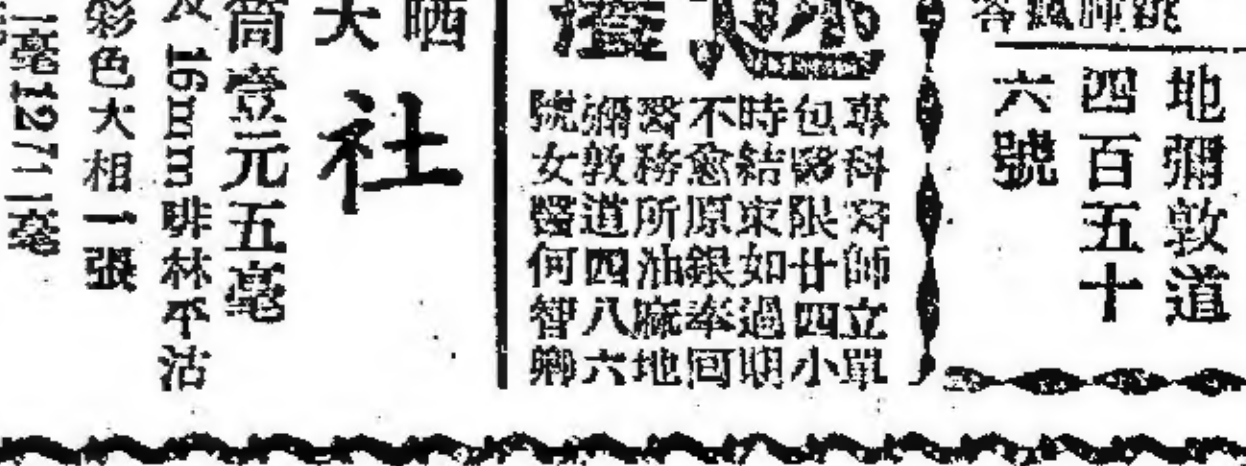 地彌敦道
四百五十
六號
專科醫師立單
包醫限廿四小
時結束如過期
不愈原銀奉囘
醫務所油蔴地
彌敦道四八六
號女醫何智卿
晒
社
大
筒壹元五毫
16mm 啡林不沽
彩色大相一張
一毫1271二毫